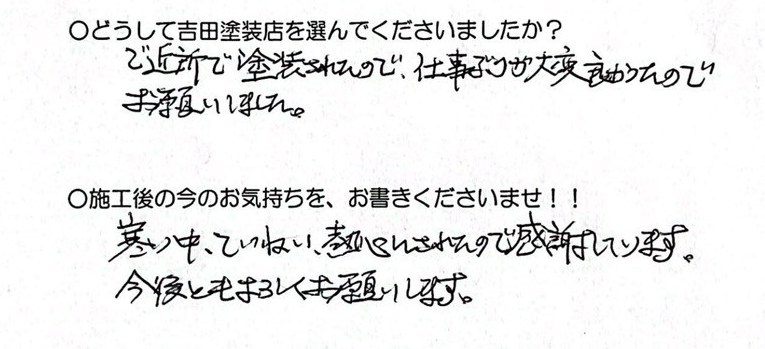 ○どうして吉田塗装店を選んでくださいましたか？
ご近所で塗装されたので、仕事ぶりが大変良かったので
お願いしました。
○施工後の今のお気持ちを、お書きくださいませ！！
寒い中、ていねい、熱心にされたので感謝しています。
今後ともよろしくお願いします。